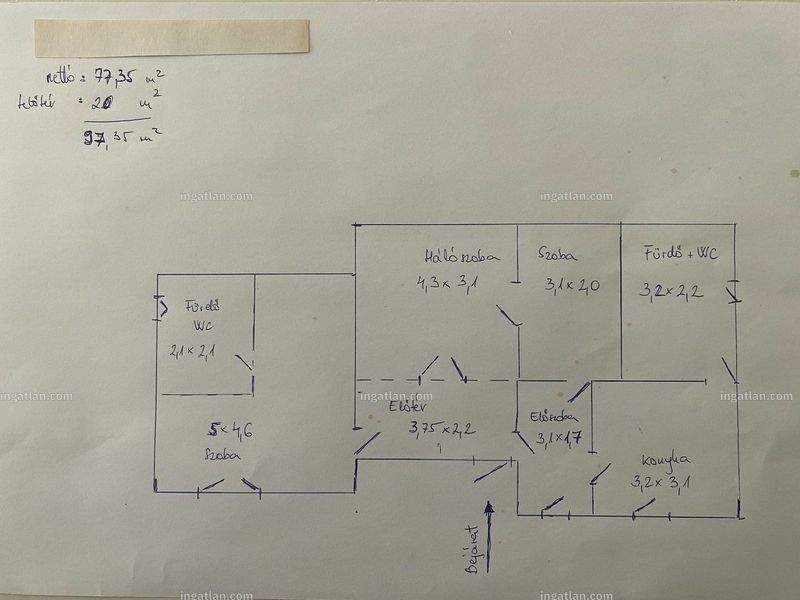 nettó = 77,35 m²
tetőtér = 20 m²
97,35 m²
ingatlan.com
ingatlan.com
Hálószoba
4,3 x 3,1
Szoba
3,1 x 2,0
Fürdő + WC
3,2 x 2,2
Fürdő
WC
2,1 x 2,1
ingatlan.com
ingatlan.com
ingatlan.com
Előtér
3,75 x 2,2
Előszoba
3,1 x 1,7
5 x 4,6
Szoba
Konyha
3,2 x 3,1
Bejárat
ingatlan.com
ingatlan.com